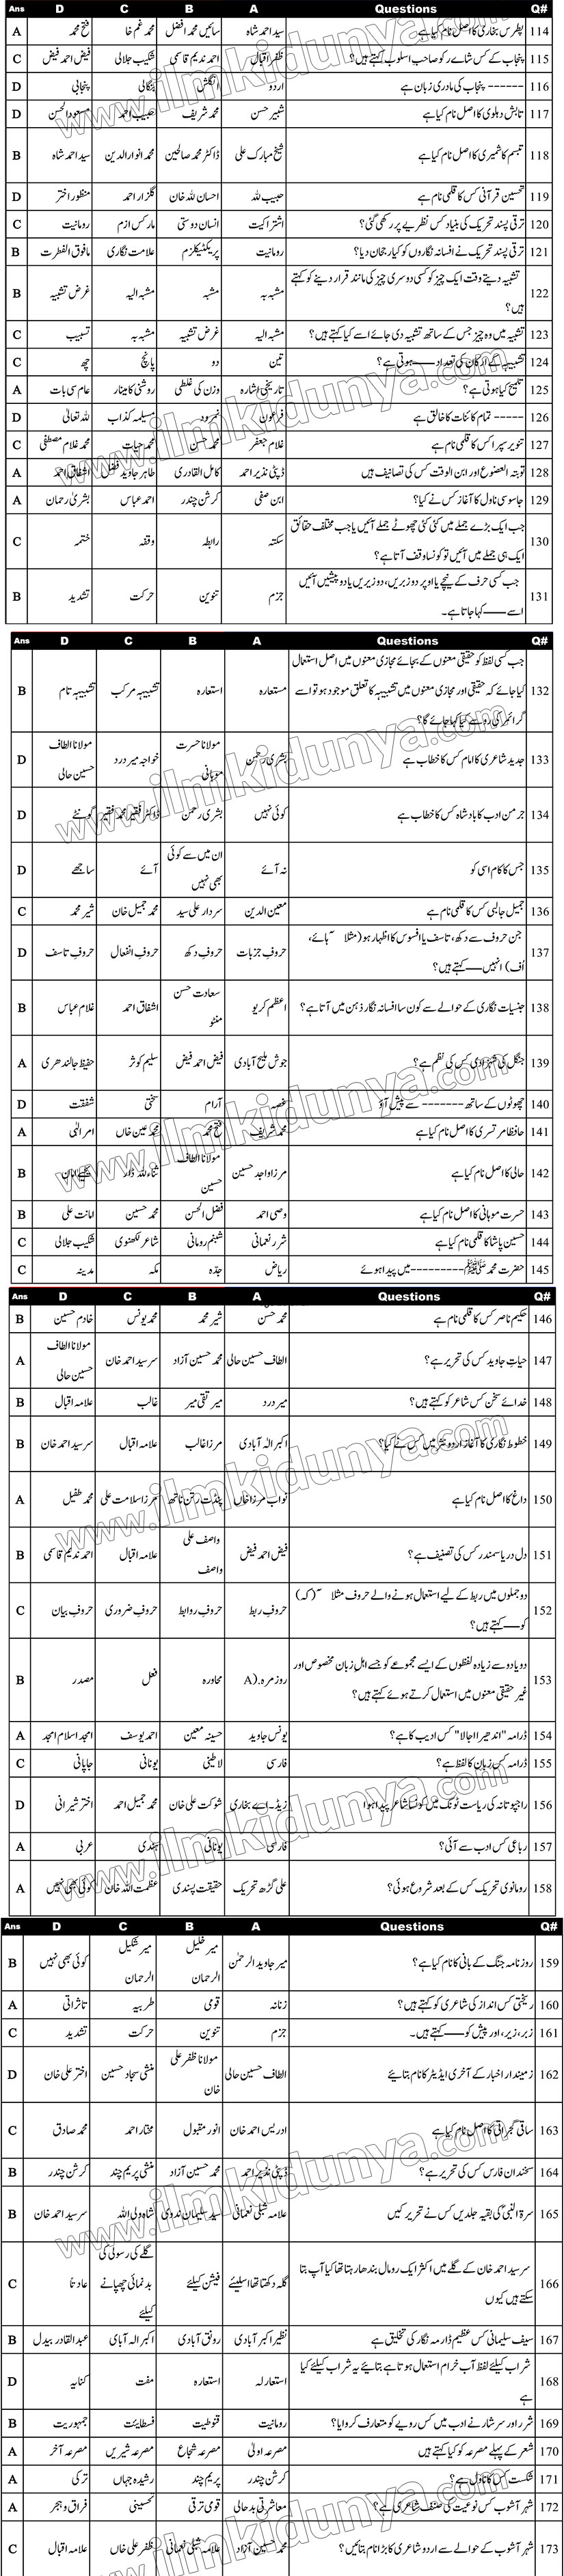 Q# Questions A B C D Ans
114 پطرس بخاری کا اصل نام کیا ہے سید احمد شاہ سائیں محمد افضل محمد غم خا فتح محمد A
115 پنجاب کے کس شاعر کو صاحب اسلوب کہتے ہیں؟ ظفر اقبال احمد ندیم قاسمی شکیب جلالی فیض احمد فیض C
116 ------ پنجاب کی مادری زبان ہے اردو انگلش بنگالی پنجابی D
117 تابش دہلوی کا اصل نام کیا ہے شبیر حسن محمد شریف حبیب احمد مسعود الحسن D
118 تبسم کاشمیری کا اصل نام کیا ہے شیخ مبارک علی ڈاکٹر محمد صالحین محمد انوار الدین سید احمد شاہ B
119 تحسین قرآنی کس کا قلمی نام ہے حبیب للہ احسان للہ خان گلزار احمد منظور اختر D
120 ترقی پسند تحریک کی بنیاد کس نظریے پر رکھی گئی؟ اشتراکیت انسان دوستی مارکس ازم رومانیت C
121 ترقی پسند تحریک نے افسانہ نگاروں کو کیا رجحان دیا؟ رومانیت پریکٹیکلزم علامت نگاری مافوق الفطرت B
122 تشبیہ دیتے وقت ایک چیز کو کسی دوسری چیز کی مانند قرار دینے کو کہتے
ہیں؟ مشبہ بہ مشبہ مشبہ الیہ غرض تشبیہ B
123 تشبیہ میں وہ چیز جس کے ساتھ تشبیہ دی جائے اسے کیا کہتے ہیں؟ مشبہ الیہ غرض تشبیہ مشبہ بہ تسبیب C
124 تشبیہ کے ارکان کی تعداد ——ہوتی ہے؟ تین دو پانچ چھ C
125 تلمیح کیا ہوتی ہے؟ تاریخی اشارہ وزن کی غلطی روشنی کا مینار عام سی بات A
126 ----- تمام کائنات کا خالق ہے فرعون نمرود مسیلمہ کذاب للہ تعالیٰ D
127 تنویر سپرا کس کا قلمی نام ہے غلام جعفر محمد حسن محمد حیات محمد غلام مصطفی C
128 توبتہ العضوع اور ابن الوقت کس کی تصانیف ہیں ڈپٹی نذیر احمد کامل القادری طاہر جاوید فضل اشفاق احمد A
129 جاسوسی ناول کا آغاز کس نے کیا؟ ابن صفی کرشن چندر احمد عباس بشریٰ رحمان A
130 جب ایک بڑے جملے میں کئی کئی چھوٹے جملے آئیں یا جب مختلف حقائق
ایک ہی جملے میں آئیں تو کونسا وقف آتا ہے؟ سکتہ رابطہ وقفہ ختمہ C
131 جب کسی حرف کے نیچے یا اوپر دو زبریں، دو زیریں یا دو پیشیں آئیں
اسے ——کہا جاتا ہے۔ جزم تنوین حرکت تشدید B
Q# Questions A B C D Ans
132 جب کسی لفظ کو حقیقی معنوں کے بجائے مجازی معنوں میں اصل استعمال
کیا جائے کہ حقیقی اور مجازی معنوں میں تشبیہ کا تعلق موجود ہو تو اسے
گرائمر کی رو سے کیا کہا جائے گا؟ مستعارہ استعارہ تشبیہ مرکب تشبیہ تام B
133 جدید شاعری کا امام کس کا خطاب ہے بشری رحمن مولانا حسرت موہانی خواجہ میر درد مولانا الطاف حسین حالی D
134 جرمن ادب کا بادشاہ کس کا خطاب ہے کوئی نہیں بشری رحمن ڈاکٹر فقیر محمد فقیر گوئٹے D
135 جس کا کام اسی کو نہ آئے ان میں سے کوئی بھی نہیں آئے ساجھے D
136 جمیل جالبی کس کا قلمی نام ہے معین الدین سردار علی سید محمد جمیل خان شیر محمد C
137 جن حروف سے دکھ، تاسف یا افسوس کا اظہار ہو (مثلا ہائے،
اُف) انہیں——کہتے ہیں؟ حروف جزبات حروف دکھ حروف انفعال حروف تاسف D
138 جنسیات نگاری کے حوالے سے کون سا افسانہ نگار ذہن میں آتا ہے؟ اعظم کریو سعادت حسن منٹو اشفاق احمد غلام عباس B
139 جنگل کی شہزادی کس کی نظم ہے؟ جوش ملیح آبادی فیض احمد فیض سلیم کوثر حفیظ جالندھری A
140 چھوٹوں کے ساتھ ------- سے پیش آؤ غصہ آرام سختی شفقت D
141 حافظ امرتسری کا اصل نام کیا ہے محمد شریف فتح محمد محمد عین خاں امر الٰہی A
142 حالی کا اصل نام کیا ہے مرزا واجد حسین مولانا الطاف حسین ثناء للہ ڈار B
143 حسرت موہانی کا اصل نام کیا ہے وصی احمد فضل الحسن محمد حسین امانت علی B
144 حسین پاشا کا قلمی نام کیا ہے شرر نعمانی شبنم رومانی شاعر لکھنوی شکیب جلالی C
145 حضرت محمد ﷺ ---------میں پیدا ہوئے ریاض جدّہ مکہ مدینہ C
Q# Questions A B C D Ans
146 حکیم ناصر کس کا قلمی نام ہے محمد حسن شیر محمد محمد یونس خادم حسین B
147 حیاتِ جاوید کس کی تحریر ہے؟ الطاف حسین حالی محمد حسین آزاد سر سید احمد خان مولانا الطاف حسین حالی A
148 خدائے سخن کس شاعر کو کہتے ہیں؟ میر درد میر تقی میر غالب علامہ اقبال B
149 خطوط نگاری کا آغاز اردو نثر میں کس نے کیا؟ اکبر الٰہ آبادی مرزا غالب علامہ اقبال سر سید احمد خان B
150 داغ کا اصل نام کیا ہے نواب مرزا خاں پنڈت رتن ناتھ مرزا سلامت علی محمد طفیل A
151 دل دریا سمندر کس کی تصنیف ہے؟ فیض احمد فیض واصف علی واصف علامہ اقبال احمد ندیم قاسمی B
152 دو جملوں میں ربط کے لیے استعمال ہونے والے حروف مثلا (کہ)
کو——کہتے ہیں؟ حروفِ ربط حروفِ روابط حروفِ ضروری حروفِ بیان C
153 دو یا دو سے زیادہ لفظوں کے ایسے مجموعے کو جسے اہل زبان مخصوص اور
غیر حقیقی معنوں میں استعمال کرتے ہوئے کہتے ہیں؟ روز مرہ.(A محاورہ فعل مصدر B
154 ڈرامہ "اندھیرا اجالا" کس ادیب کا ہے؟ یونس جاوید حسینہ معین احمد یوسف امجد اسلام امجد A
155 ڈرامہ کس زبان کا لفظ ہے؟ فارسی لاطینی یونانی جاپانی C
156 راجپوتانہ کی ریاست ٹونک میں کونسا شاعر پیدا ہوا زیڈ۔اے بخاری شوکت علی خان محمد جمیل احمد اختر شیرانی D
157 رباعی کس ادب سے آئی؟ فارسی یونانی ہندی عربی A
158 رومانوی تحریک کس کے بعد شروع ہوئی؟ علی گڑھ تحریک حقیقت پسندی عظمت اللہ خان کوئی بھی نہیں A
Q# Questions A B C D Ans
159 روزنامہ جنگ کے بانی کا نام کیا ہے؟ میر جاوید الرحمٰن میر خلیل الرحمان میر شکیل الرحمان کوئی بھی نہیں B
160 ریختی کس انداز کی شاعری کو کہتے ہیں؟ زنانہ قومی طربیہ تاثراتی A
161 زبر، زیر، اور پیش کو ——کہتے ہیں۔ جزم تنوین حرکت تشدید C
162 زمیندار اخبار کے آخری ایڈیٹر کا نام بتایئے الطاف حسین حالی مولانا ظفر علی خان منشی سجاد حسین اختر علی خان D
163 ساقی گجراتی کا اصل نام کیا ہے ادریس احمد خان انور مقبول مختار احمد محمد صادق C
164 سخندان فارس کس کی تحریر ہے؟ ڈپٹی نذیر احمد محمد حسین آزاد منشی پریم چند کرشن چندر B
165 سرۃ النبیؐ کی بقیہ جلدیں کس نے تحریر کیں علامہ شبلی نعمانی سید سلیمان ندوی شاہ ولی اللہ سر سید احمد خان B
166 سر سید احمد خان کے گلے میں اکثر ایک رومال بندھا رہتا تھا کیا آپ بتا
سکتے ہیں کیوں گلہ دکھتا تھا اسلیئے فیشن کیلئے گلے کی رسولی کی بدنمائی چھپانے کیلئے عادتاً C
167 سیف سلیمانی کس عظیم ڈارمہ نگار کی تخلیق ہے نظیر اکبر آبادی رونق آبادی اکبر الہ آبای عبدالقادر بیدل B
168 شراب کیلئے لفظ آب خرام استعمال ہوتا ہے بتائیے یہ شراب کیلئے کیا
ہے استعارلہ استعارہ مفت کنایہ D
169 شرر اور سرشار نے ادب میں کس رویے کو متعارف کروایا؟ رومانیت قنوطیت فسطایئت جمہوریت B
170 شعر کے پہلے مصرعہ کو کیا کہتے ہیں مصرعہ اولیٰ مصرعہ شجاع مصرعہ شیریں مصرعہ آخر A
171 شکست کس کا ناول ہے؟ کرشن چندر پریم چند رشیدہ جہاں ترکی A
172 شہر آشوب کس نوعیت کی صنف شاعری ہے؟ معاشرتی بدحالی قومی ترقی تحسینی فراق و ہجر A
173 شہر آشوب کے حوالے سے اردو شاعری کا بڑا نام بتائیں؟ محمد حسین آزاد علامہ شبلی نعمانی ظفر علی خاں علامہ اقبال C
www.ilmkidunya.com